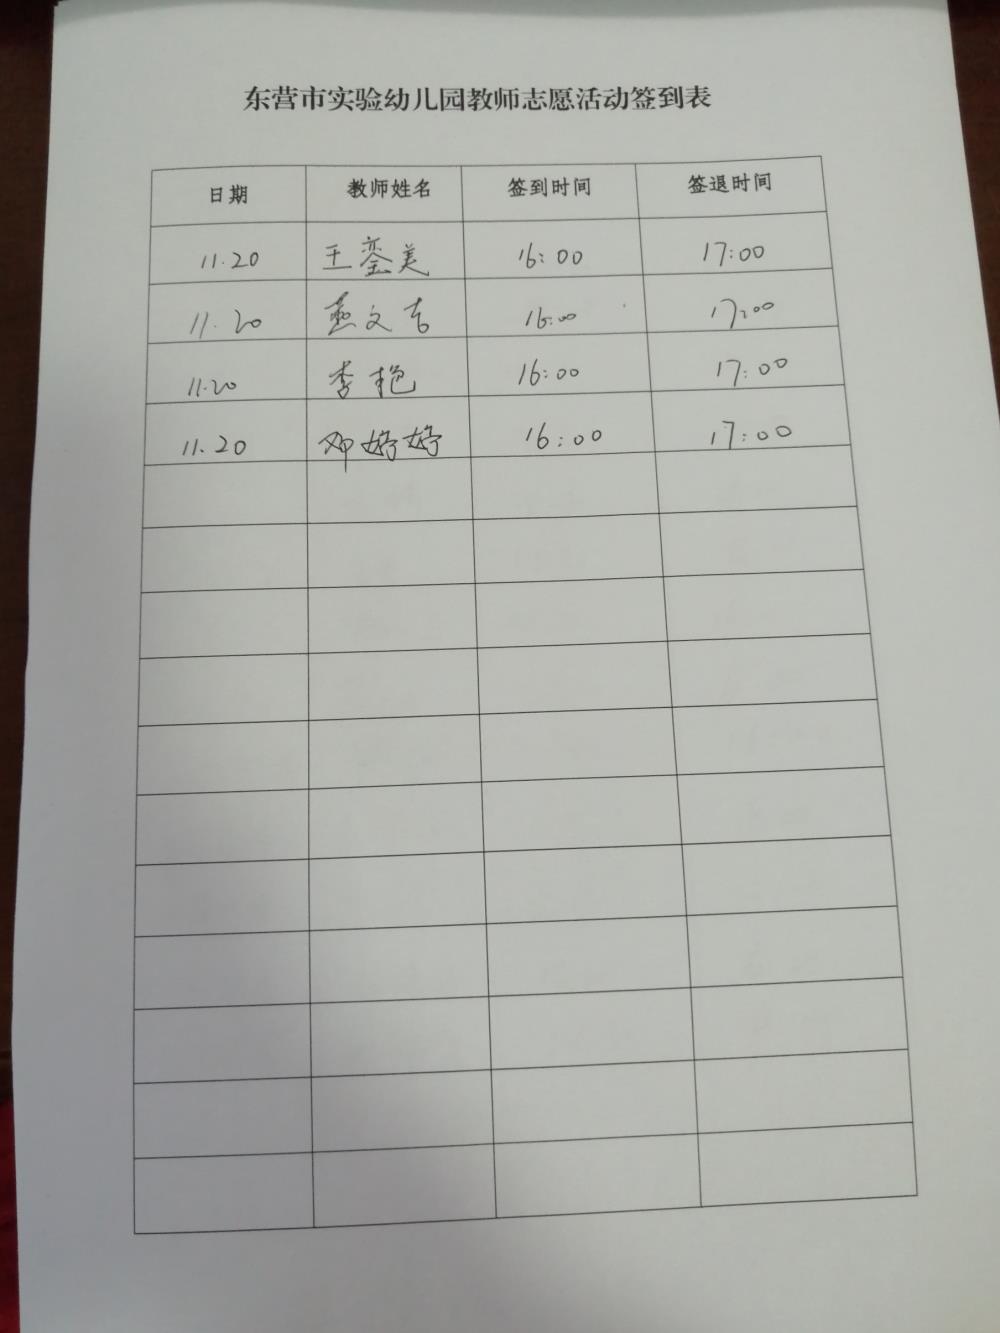 东营市实验幼儿园教师志愿活动签到表
日期 教师姓名 签到时间 签退时间
11.20 王銮美 16:00 17:00
11.20 燕文吉 16:00 17:00
11.20 李艳 16:00 17:00
11.20 邓婷婷 16:00 17:00